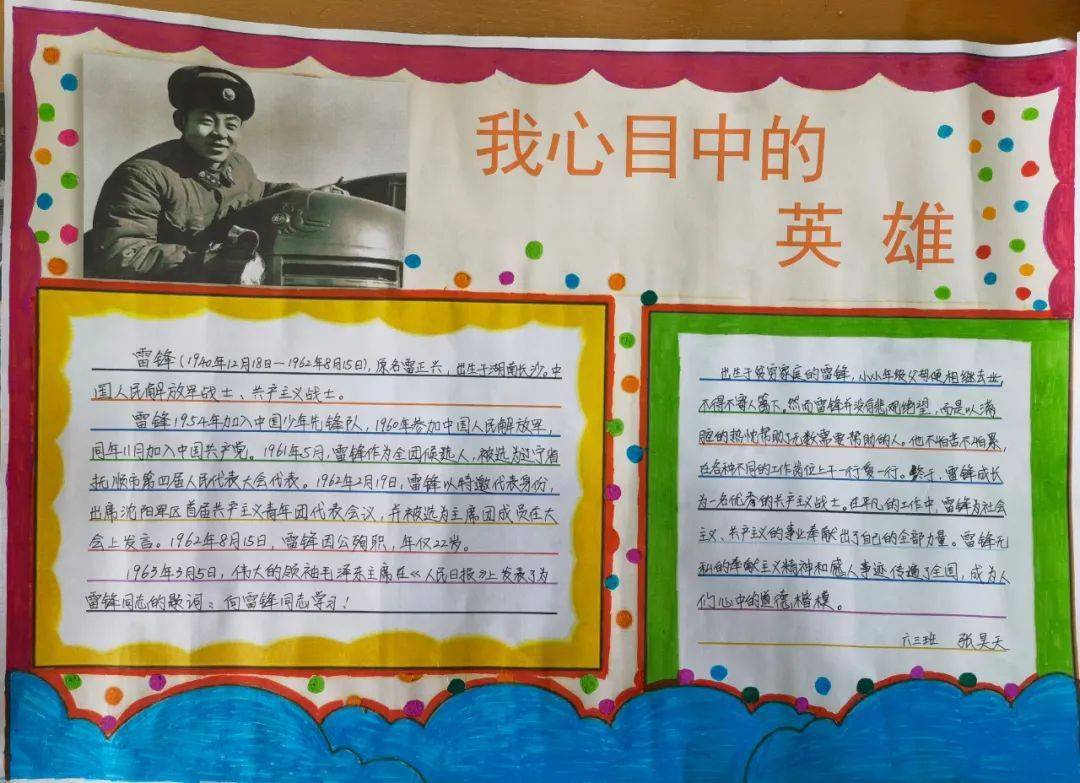 我心目中的
英雄
雷锋(1940年12月18日—1962年8月15日),原名雷正兴,出生于湖南长沙,中
国人民解放军战士、共产主义战士。
雷锋1954年加入中国少年先锋队,1960年参加中国人民解放军,
同年11月加入中国共产党。1961年5月,雷锋作为全团候选人,被选为辽宁省
抚顺市第四届人民代表大会代表。1962年2月19日,雷锋以特邀代表身份,
出席沈阳军区首届共产主义青年团代表会议,并被选为主席团成员在大
会上发言。1962年8月15日,雷锋因公殉职,年仅22岁。
1963年3月5日,伟大的领袖毛泽东主席在《人民日报》上发表了为
雷锋同志的题词:向雷锋同志学习!
出生于贫穷家庭的雷锋,小小年级父母便相继去世,
不得不寄人篱下。然而雷锋并没有悲观绝望,而是以满
腔的热忱帮助了无数需要帮助的人。他不怕苦不怕累,
在各种不同的工作岗位上干一行爱一行。终于,雷锋成长
为一名优秀的共产主义战士。在平凡的工作中,雷锋为社会
主义、共产主义的事业奉献出了自己的全部力量。雷锋无
私的奉献主义精神和感人事迹传遍了全国,成为人
们心中的道德楷模。
六三班 张昊天